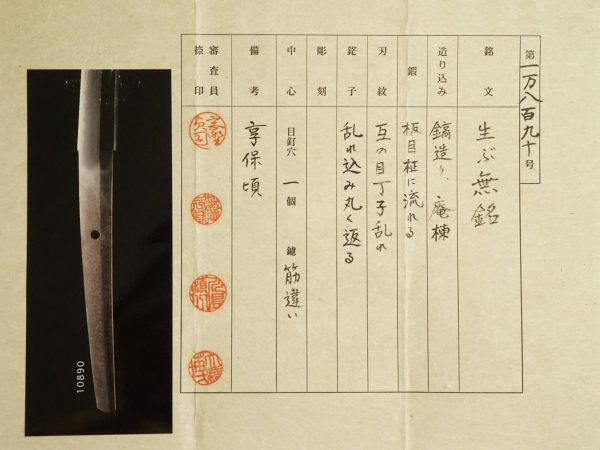 第一万八百九十号
銘文 生ぶ無銘
造り込み 鎬造り、庵棟
鍜 板目柾に流れる
刃紋 互の目丁子乱れ
鋩子 乱れ込み丸く返る
彫刻
中心 目釘穴 一個 鑢 筋違い
備考 享保頃
審査員捺印
10890